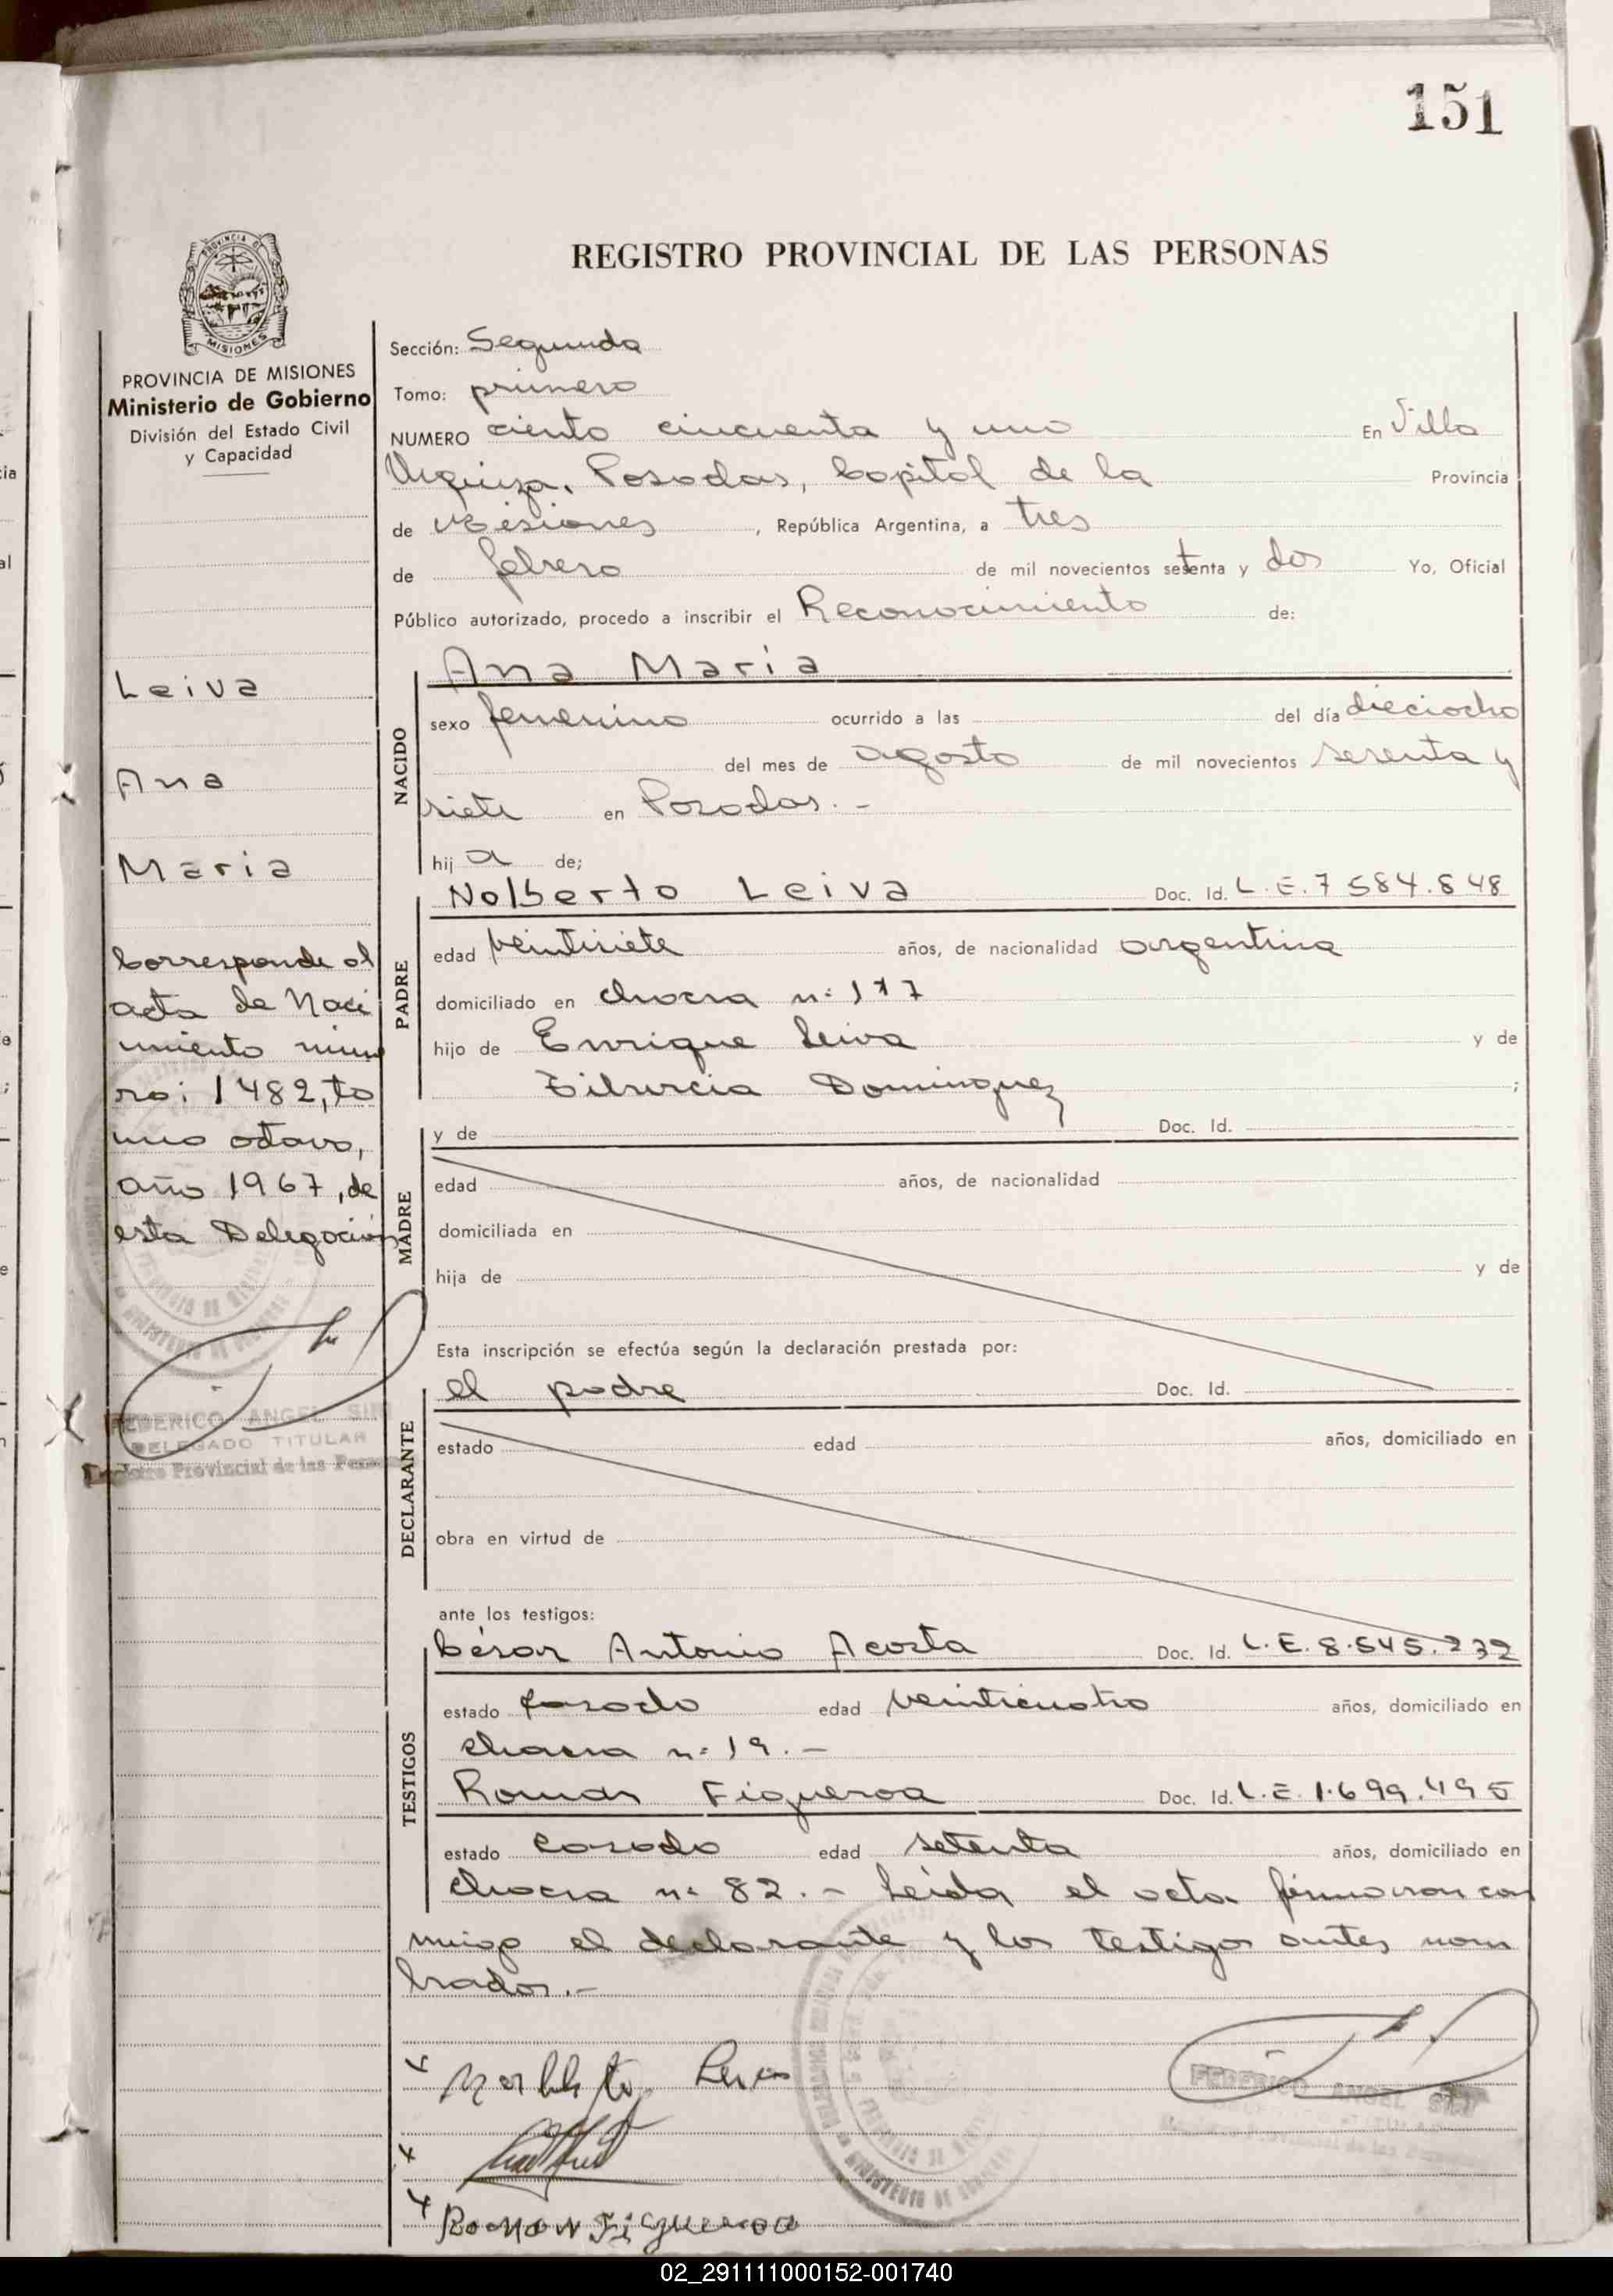 151
REGISTRO PROVINCIAL DE LAS PERSONAS
PROVINCIA DE MISIONES
Ministerio de Gobierno
División del Estado Civil
y Capacidad
Leiva
Ana
Maria
Corresponde al
acta de Naci
miento núme
ro: 1482, to
mo octavo,
año 1967, de
esta Delegación
FEDERICO ANGEL
DELEGADO TITULAR
Registro Provincial de las
Sección: Segunda
Tomo: primero
NUMERO ciento cincuenta y uno En Villa
Urquiza, Posadas, Capital de la Provincia
de Misiones, República Argentina, a tres
de febrero de mil novecientos setenta y dos Yo, Oficial
Público autorizado, procedo a inscribir el Reconocimiento de:
NACIDO
Ana María
sexo femenino ocurrido a las del día dieciocho
del mes de agosto de mil novecientos sesenta y
siete en Posadas.-
hij a de;
PADRE
Nolberto Leiva Doc. Id. L.E. 7 584.848
edad veintisiete años, de nacionalidad argentina
domiciliado en chacra n: 117
hijo de Enrique Leiva y de
Tiburcia Dominguez ;
MADRE
y de Doc. Id.
edad años, de nacionalidad
domiciliada en
hija de y de
Esta inscripción se efectúa según la declaración prestada por:
DECLARANTE
el padre Doc. Id.
estado edad años, domiciliado en
obra en virtud de
ante los testigos:
TESTIGOS
César Antonio Acosta Doc. Id. L.E. 8.545.232
estado casado edad veinticuatro años, domiciliado en
chacra n: 19.-
Roman Figueroa Doc. Id. L.E. 1.699.495
estado casado edad setenta años, domiciliado en
chacra n: 82.- Leida el acta firmaron con
migo el declarante y los testigos antes nom
brados.-
Leiva
FEDERICO ANGEL
Roman Figueroa
02_291111000152-001740